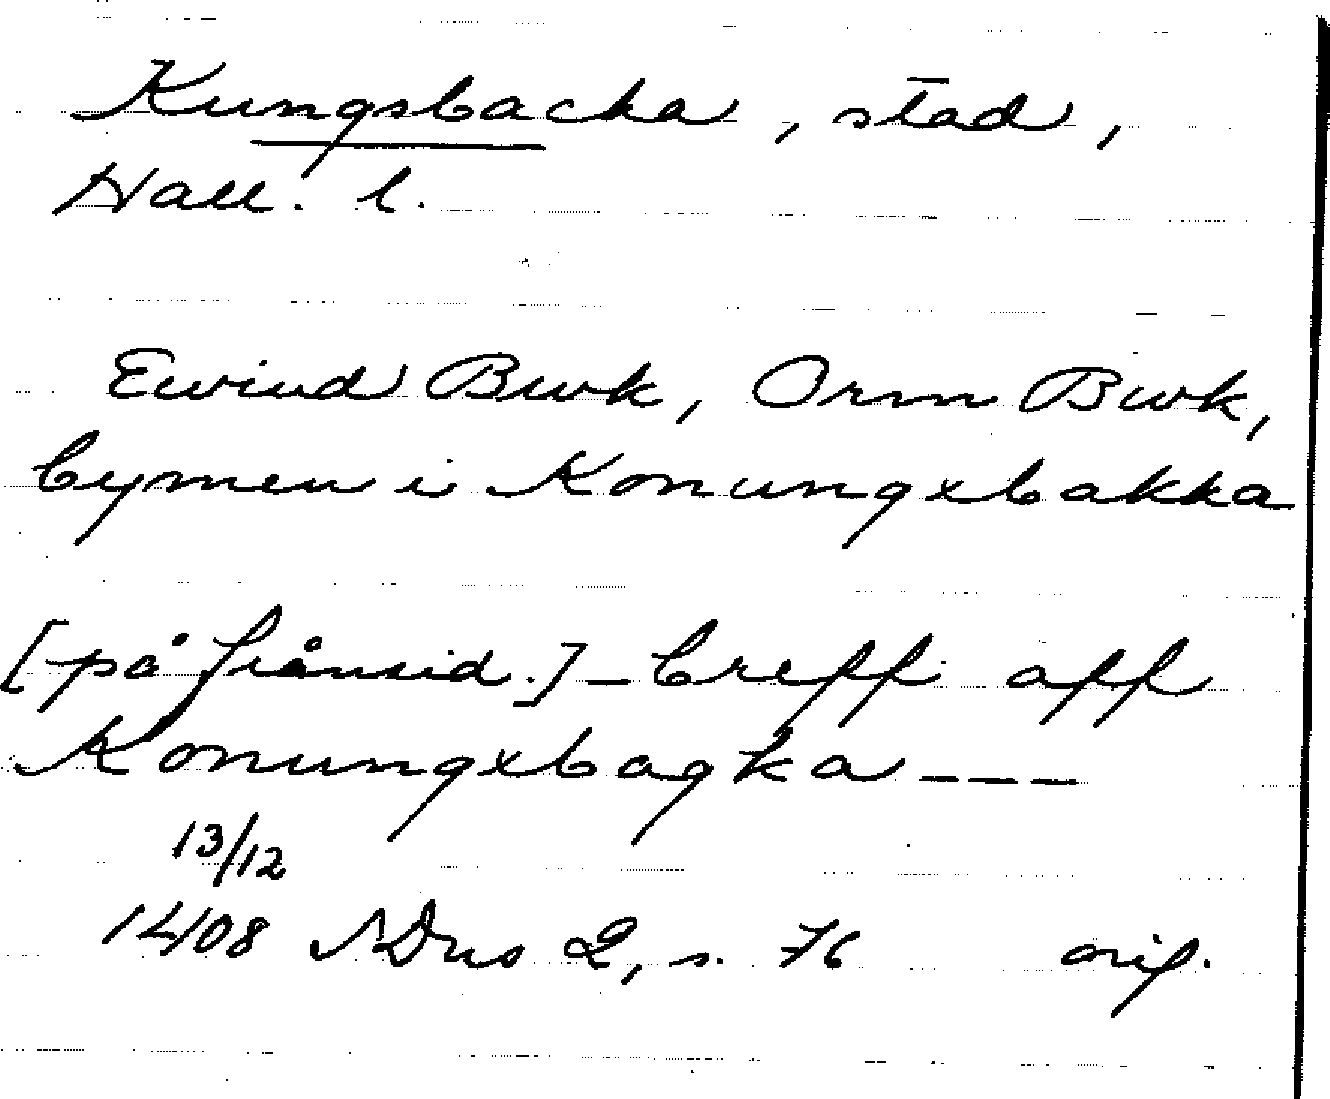 Kungsbacka, stad,
Hall. l.
Ewind Bwk, Orm Bwk,
bymen i Konungxbakka
[på frånsid.] – breff aff
Konungxbagka ---
13/12
1408 SDns 2, s. 76 orig.